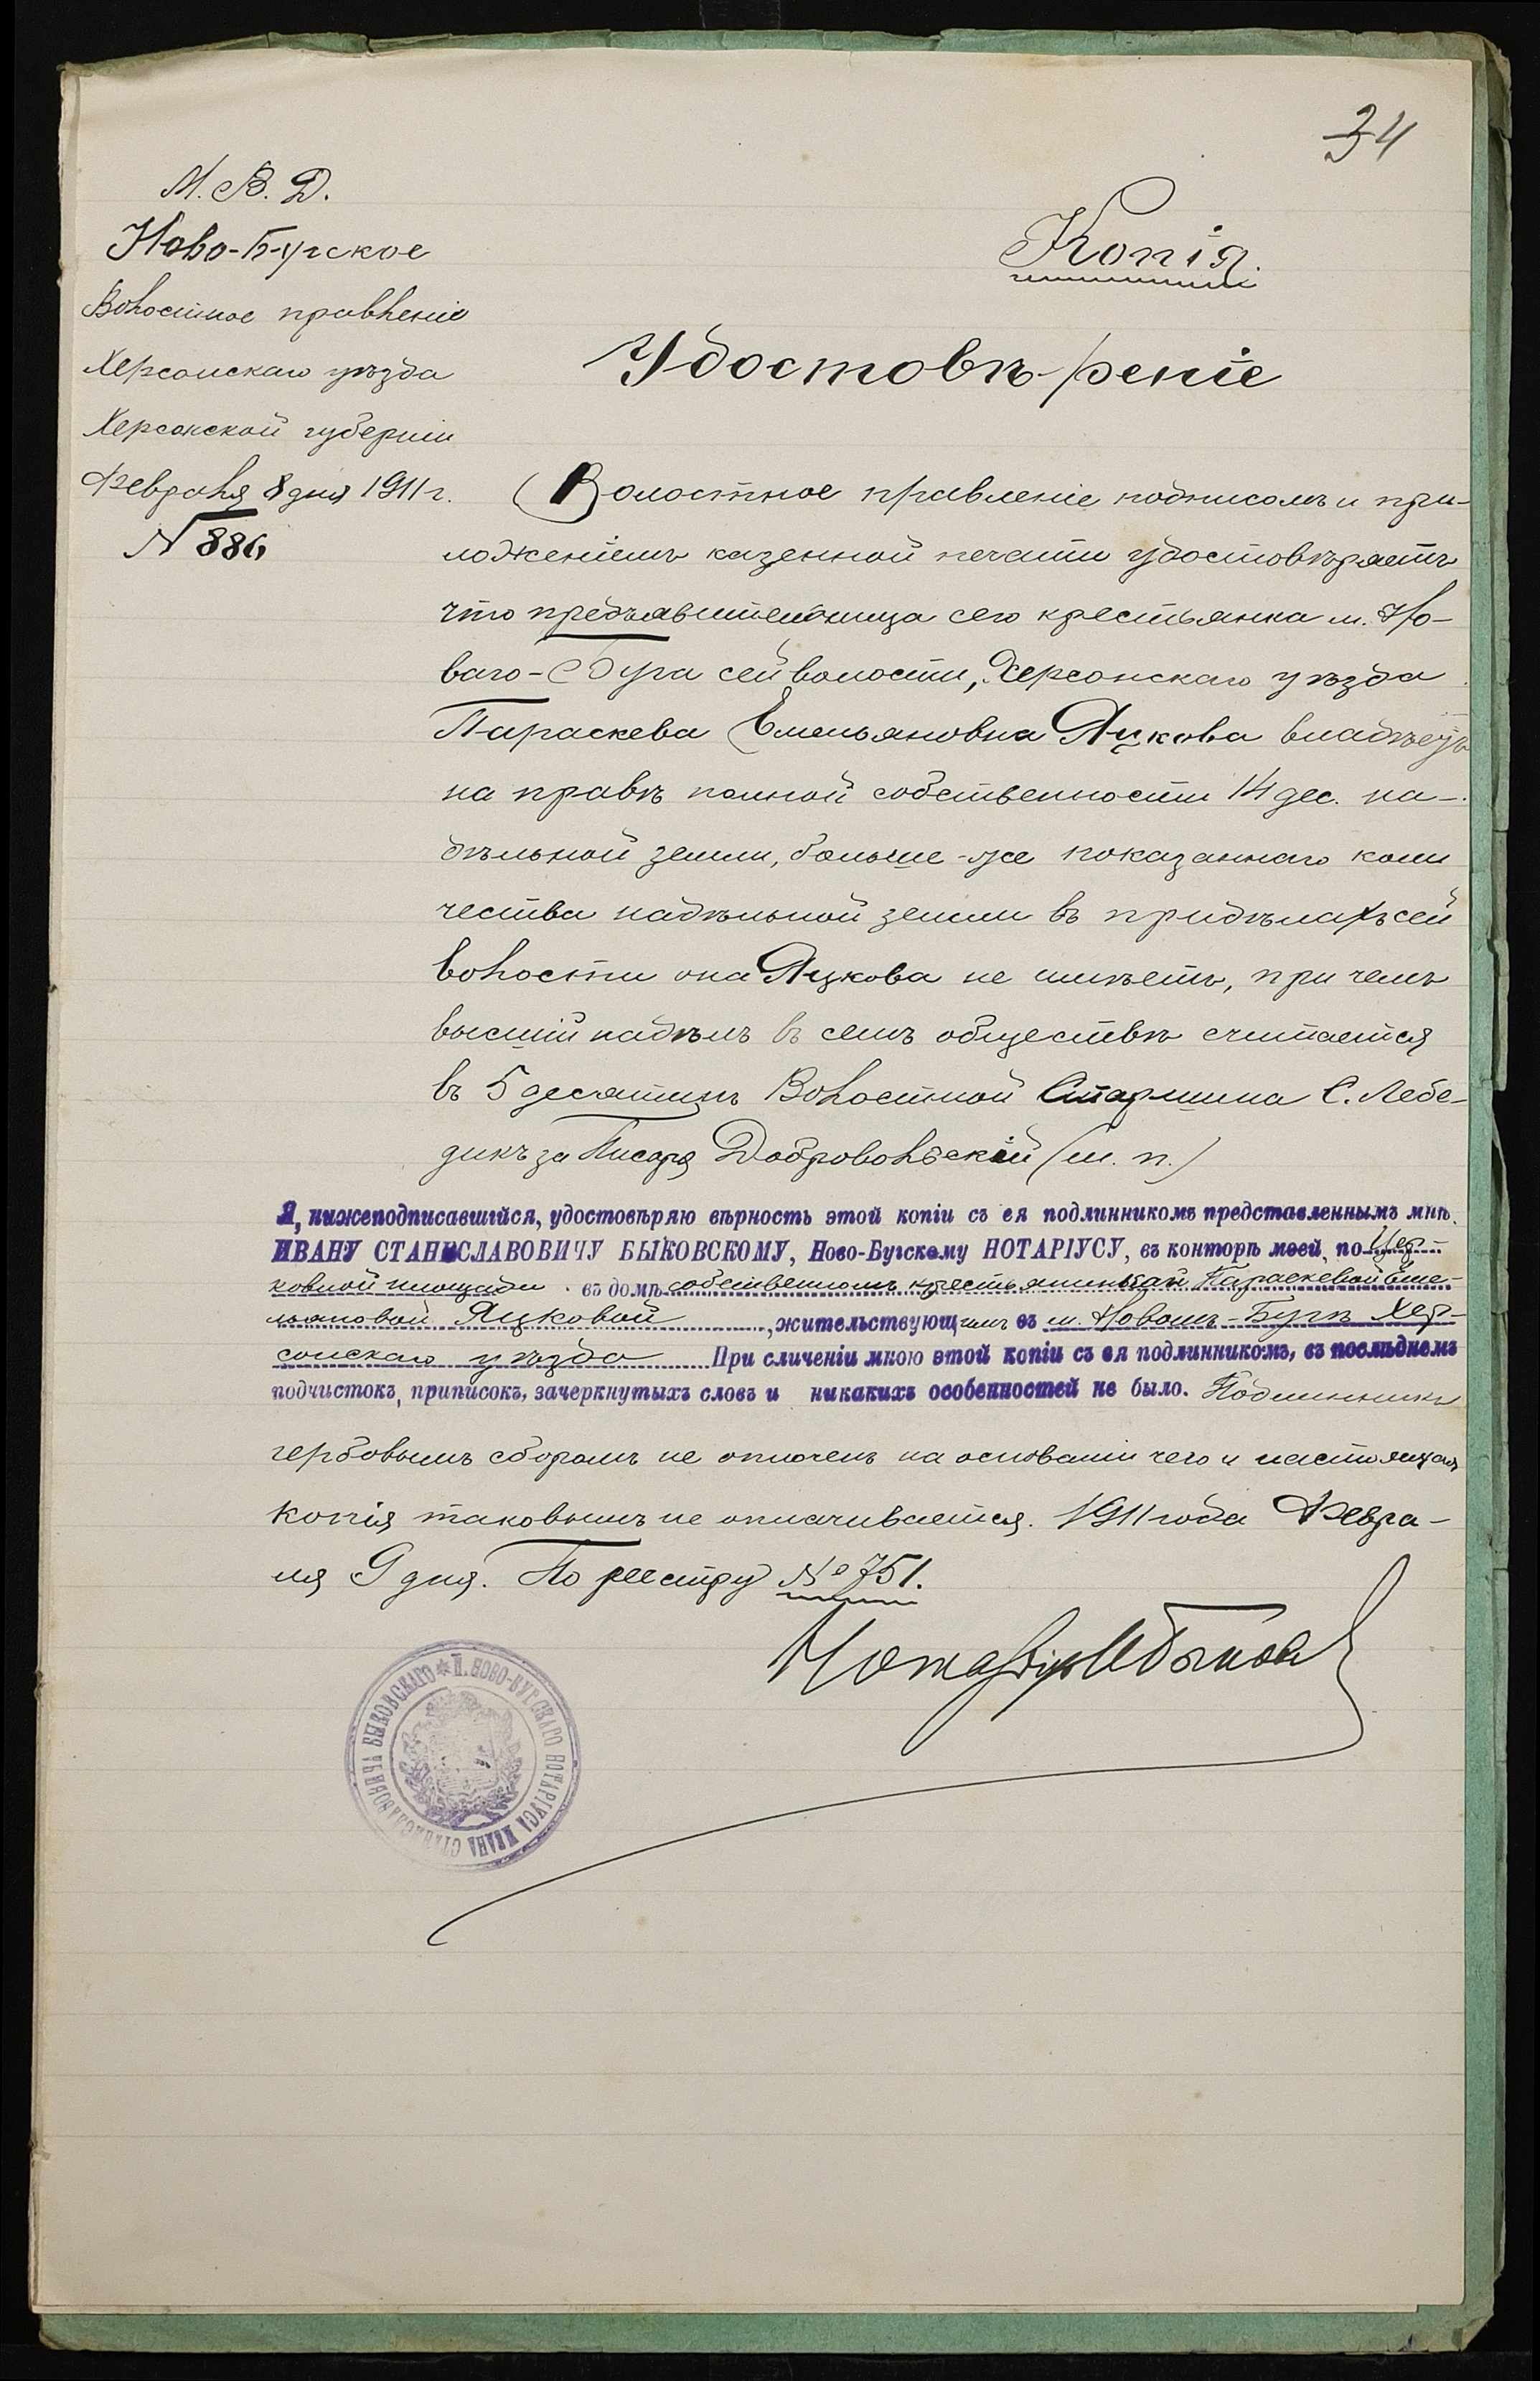 34
М. В. Д.
Ново-Бугское
Волостное правленіе
Херсонскаго уѣзда
Херсонской губерніи
Февраля 8 дня 1911 г.
N 886
Копія.
Удостовѣреніе
Волостное правленіе подписомъ и при-
ложеніемъ казенной печати удостовѣряетъ
что предъявительница сего крестьянка м. Но-
ваго-Буга сей волости, Херсонскаго уѣзда
Параскева Емельяновна Яцкова владѣетъ
на правѣ полной собственности 14 дес. на-
дѣльной земли, больше-же показаннаго коли
чества надѣльной земли въ придѣлахъ сей
волости она Яцкова не имѣетъ, при чемъ
высшій надѣлъ въ семъ обществѣ считается
въ 5 десятинъ Волостной Старшина С. Лебе-
дикъ за Писаря Добровольскій (м. п.)
Я, нижеподписавшійся, удостовѣряю вѣрность этой копіи съ ея подлинникомъ представленнымъ мнѣ,
ИВАНУ СТАНИСЛАВОВИЧУ БЫКОВСКОМУ, Ново-Бугскому НОТАРІУСУ, въ конторѣ моей, по Цер-
ковной площади въ домѣ собственномъ крестьянинкай Параскевой Еме-
льяновой Яцковой, жительствующимъ въ м. Новомъ-Бугѣ Хер-
сонскаго уѣзда При сличеніи мною этой копіи съ ея подлинникомъ, въ послѣднемъ
подчистокъ, приписокъ, зачеркнутыхъ словъ и никакихъ особенностей не было. Подлинникъ
гербовымъ сборомъ не оплоченъ на основаніи чего и настоящая
копія таковымъ не оплачивается. 1911 года Февра-
ля 9 дня. По реестру № 751.
Нотаріусъ И Быков
Н. НОВО-БУГСКАГО НОТАРІУСА ИВАНА СТАНИСЛАВОВИЧА БЫКОВСКАГО